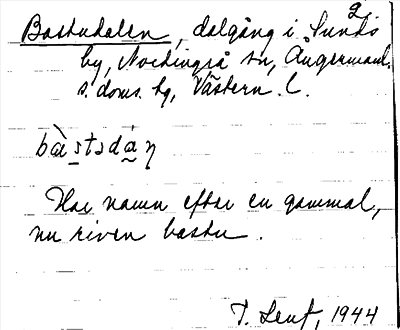 Bastudalen, dalgång i Sundö
by, Nordingrå sn, Ångermanl.
s. doms. hg, Västern. l.
Har namn efter en gammal,
nu riven bastu.
T. Lenf, 1944